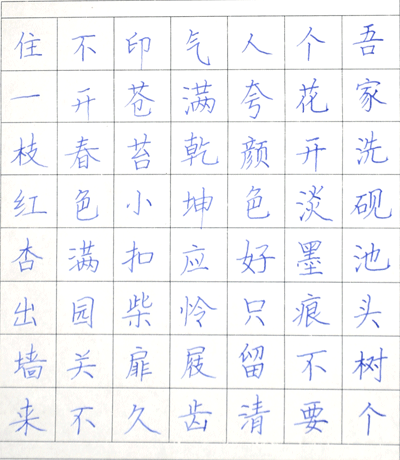 吾家洗砚池头树个
个花开淡墨痕不要
人夸颜色好只留清
气满乾坤应怜屐齿
印苍苔小扣柴扉久
不开春色满园关不
住一枝红杏出墙来